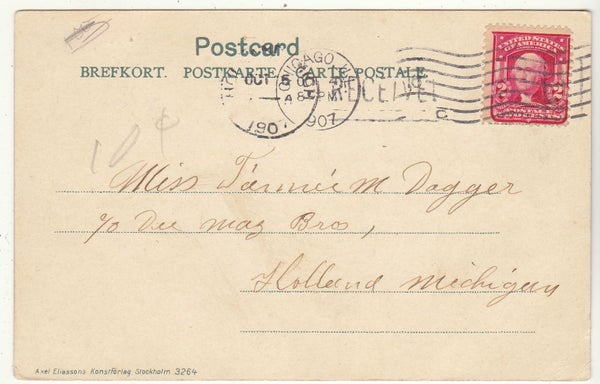 Postcard
BREFKORT. POSTKARTE. CARTE POSTALE.
CHICAGO
OCT 5
8 PM
1907
1907
RECEIVED
UNITED STATES
OF AMERICA
2 2
10¢
Miss Fannie M Dagger
c/o Du Mez Bros,
Holland Michigan
Axel Eliassons Konstförlag, Stockholm 3264